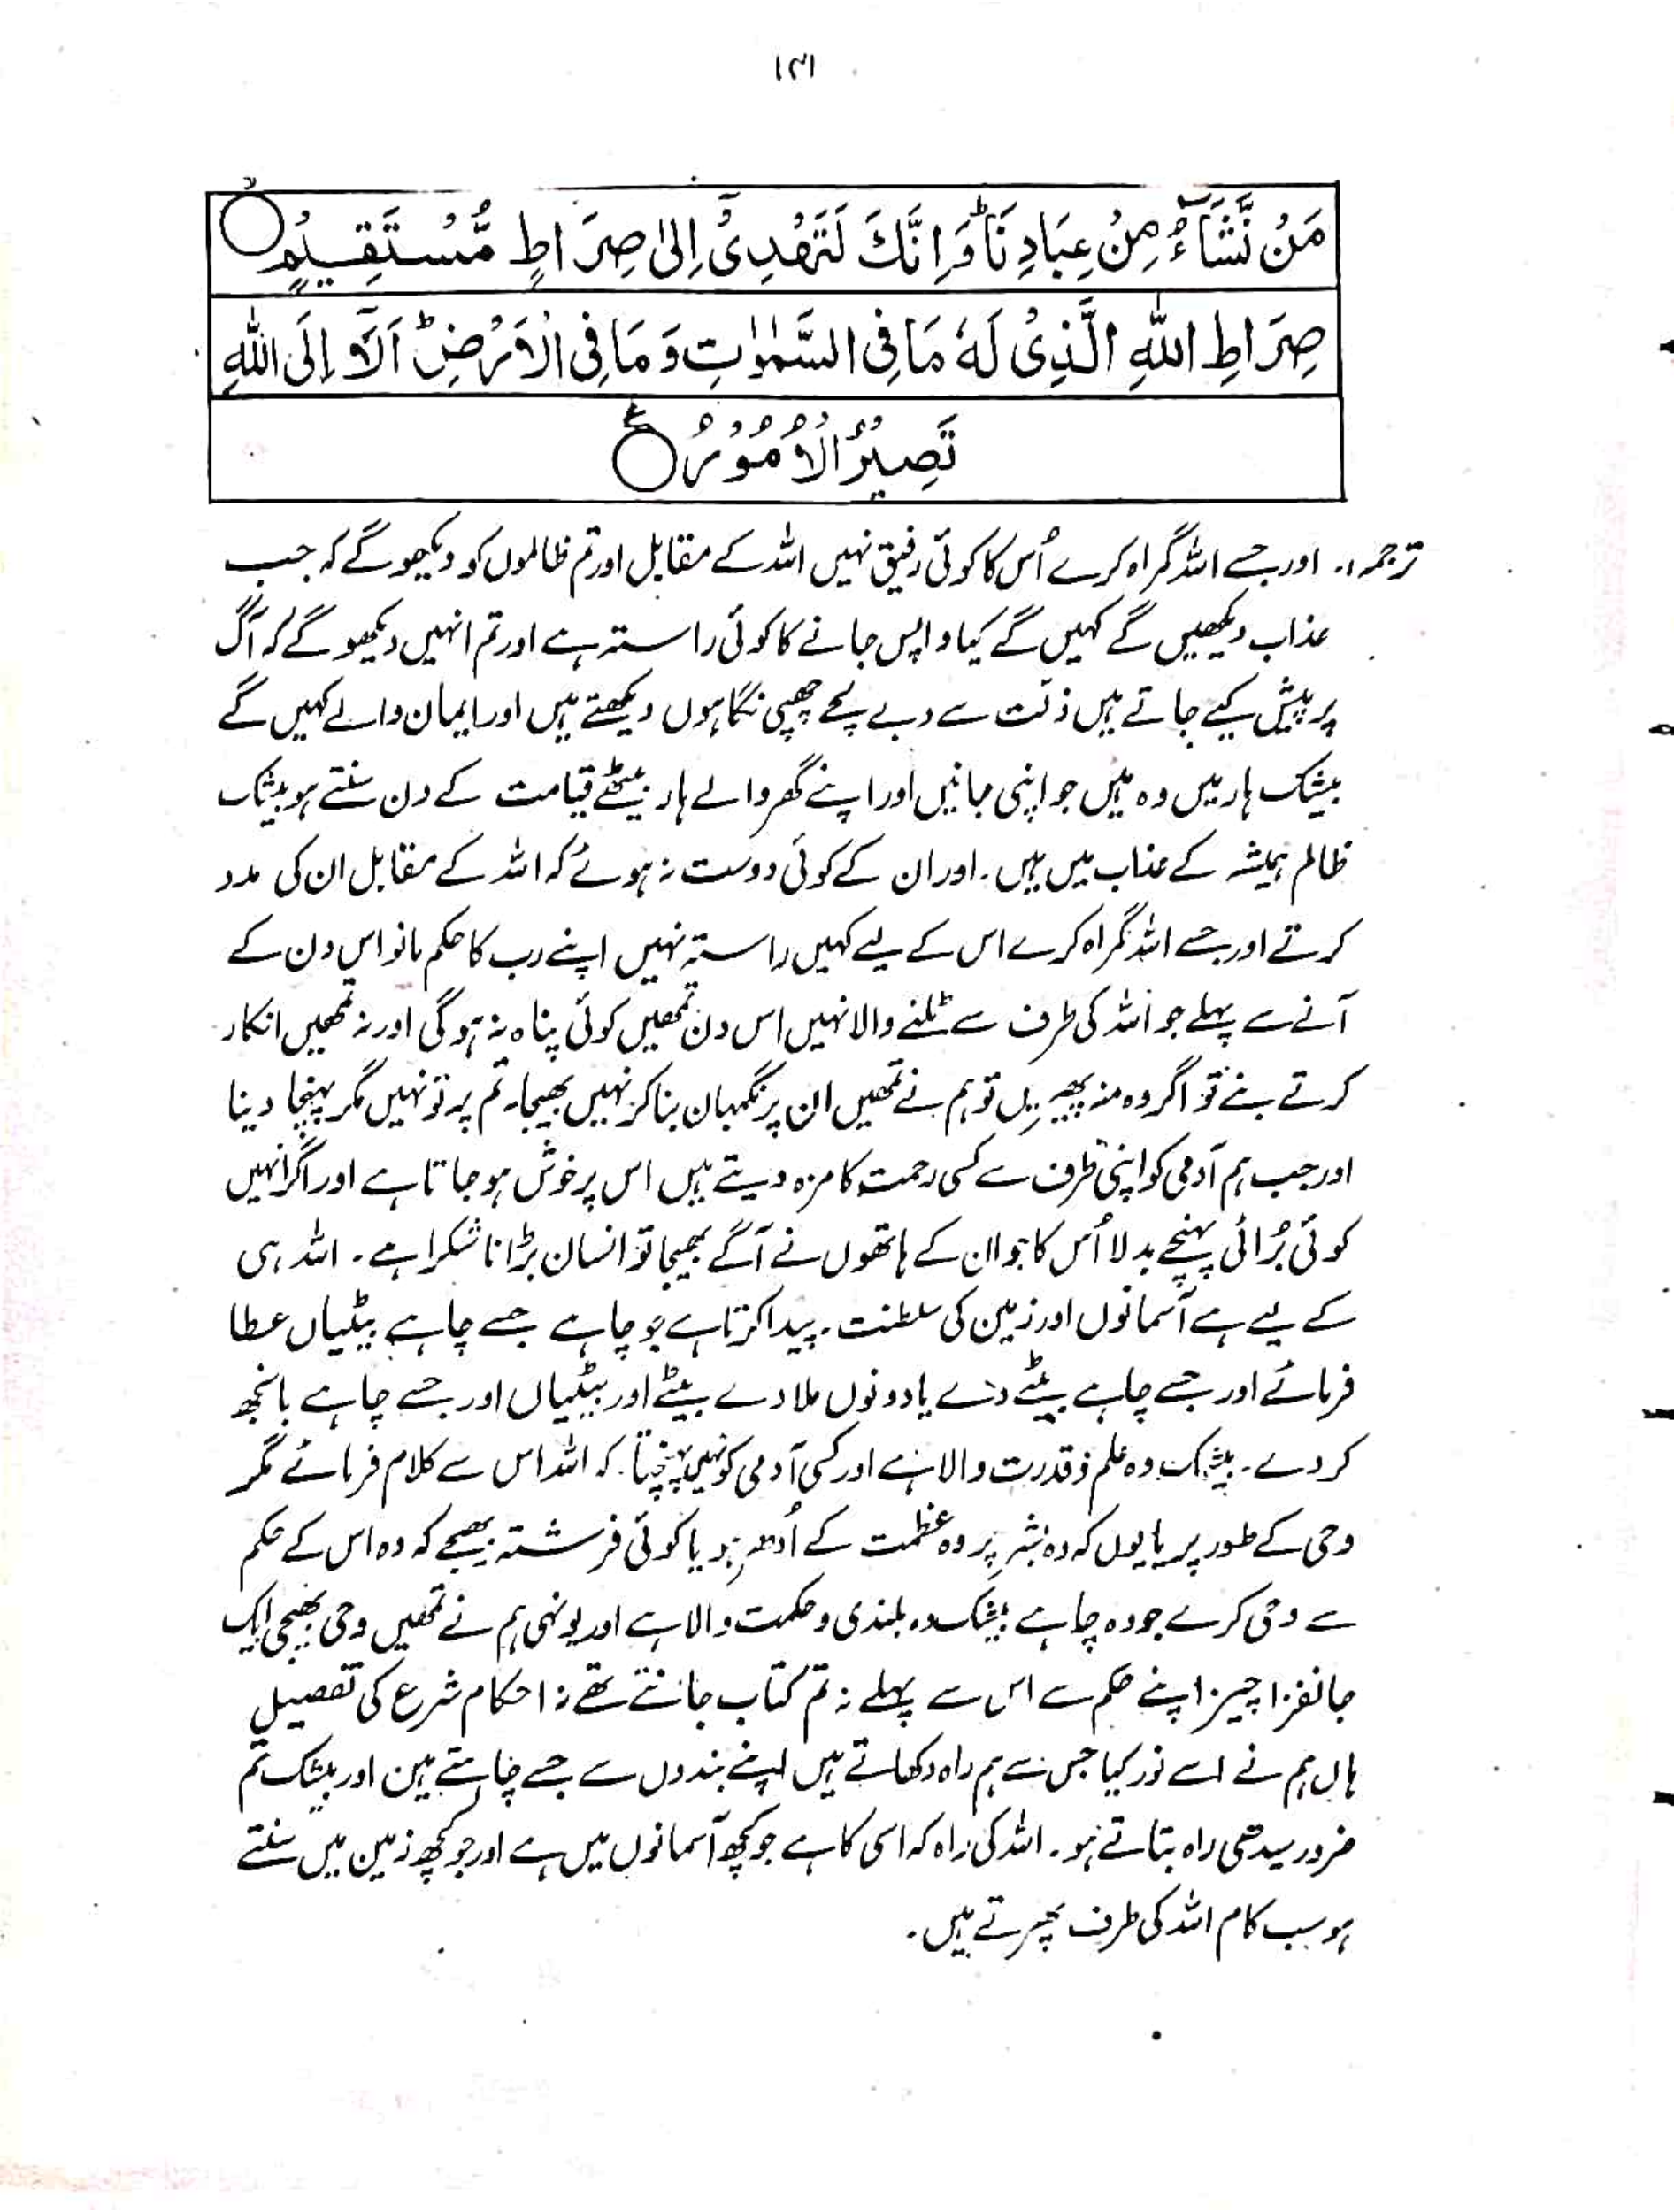 ۱۳۱
مَنْ نَّشَآءُ مِنْ عِبَادِنَا ؕ وَاِنَّكَ لَتَهْدِیْۤ اِلٰی صِرَاطٍ مُّسْتَقِیْمٍ ۙ
صِرَاطِ اللّٰهِ الَّذِیْ لَهٗ مَا فِی السَّمٰوٰتِ وَمَا فِی الْاَرْضِ ؕ اَلَاۤ اِلَی اللّٰهِ
تَصِیْرُ الْاُمُوْرُ ۠
ترجمہ:۔ اور جسے اللہ گمراہ کرے اُس کا کوئی رفیق نہیں اللہ کے مقابل اور تم ظالموں کو دیکھو گے کہ جب
عذاب دیکھیں گے کہیں گے کیا واپس جانے کا کوئی راستہ ہے اور تم انہیں دیکھو گے کہ آگ
پر پیش کیے جاتے ہیں ذلت سے دبے لچے چھپی نگاہوں دیکھتے ہیں اور ایمان والے کہیں گے
بیشک ہار میں وہ ہیں جو اپنی جانیں اور اپنے گھر والے ہار بیٹھے قیامت کے دن سنتے ہو بیشک
ظالم ہمیشہ کے عذاب میں ہیں۔ اور ان کے کوئی دوست نہ ہوئے کہ اللہ کے مقابل ان کی مدد
کرتے اور جسے اللہ گمراہ کرے اس کے لیے کہیں راستہ نہیں اپنے رب کا حکم مانو اس دن کے
آنے سے پہلے جو اللہ کی طرف سے ٹلنے والا نہیں اس دن تمھیں کوئی پناہ نہ ہوگی اور نہ تمھیں انکار
کرتے بنے تو اگر وہ منہ پھیریں تو ہم نے تمھیں ان پر نگہبان بنا کر نہیں بھیجا، تم پہ تو نہیں مگر پہنچا دینا
اور جب ہم آدمی کو اپنی طرف سے کسی رحمت کا مزہ دیتے ہیں اس پر خوش ہو جاتا ہے اور اگر انہیں
کوئی بُرائی پہنچے بدلا اُس کا جو ان کے ہاتھوں نے آگے بھیجا تو انسان بڑا ناشکرا ہے۔ اللہ ہی
کے لیے ہے آسمانوں اور زمین کی سلطنت۔ پیدا کرتا ہے جو چاہے جسے چاہے بیٹیاں عطا
فرمائے اور جسے چاہے بیٹے دے یا دونوں ملا دے بیٹے اور بیٹیاں اور جسے چاہے بانجھ
کردے۔ بیشک وہ علم و قدرت والا ہے اور کسی آدمی کو نہیں پہنچتا۔ کہ اللہ اس سے کلام فرمائے مگر
وحی کے طور پر یا یوں کہ وہ بشر پر وہ عظمت کے اُدھر ہو یا کوئی فرشتہ بھیجے کہ وہ اس کے حکم
سے وحی کرے جو وہ چاہے بیشک وہ بلندی و حکمت والا ہے اور یونہی ہم نے تمھیں وحی بھیجی ایک
جانفزا چیز اپنے حکم سے اس سے پہلے نہ تم کتاب جانتے تھے نہ احکام شرع کی تفصیل
ہاں ہم نے اسے نور کیا جس سے ہم راہ دکھاتے ہیں اپنے بندوں سے جسے چاہتے ہین اور بیشک تم
ضرور سیدھی راہ بتاتے ہو۔ اللہ کی راہ کہ اسی کا ہے جو کچھ آسمانوں میں ہے اور جو کچھ زمین میں سنتے
ہو سب کام اللہ کی طرف پھرتے ہیں۔